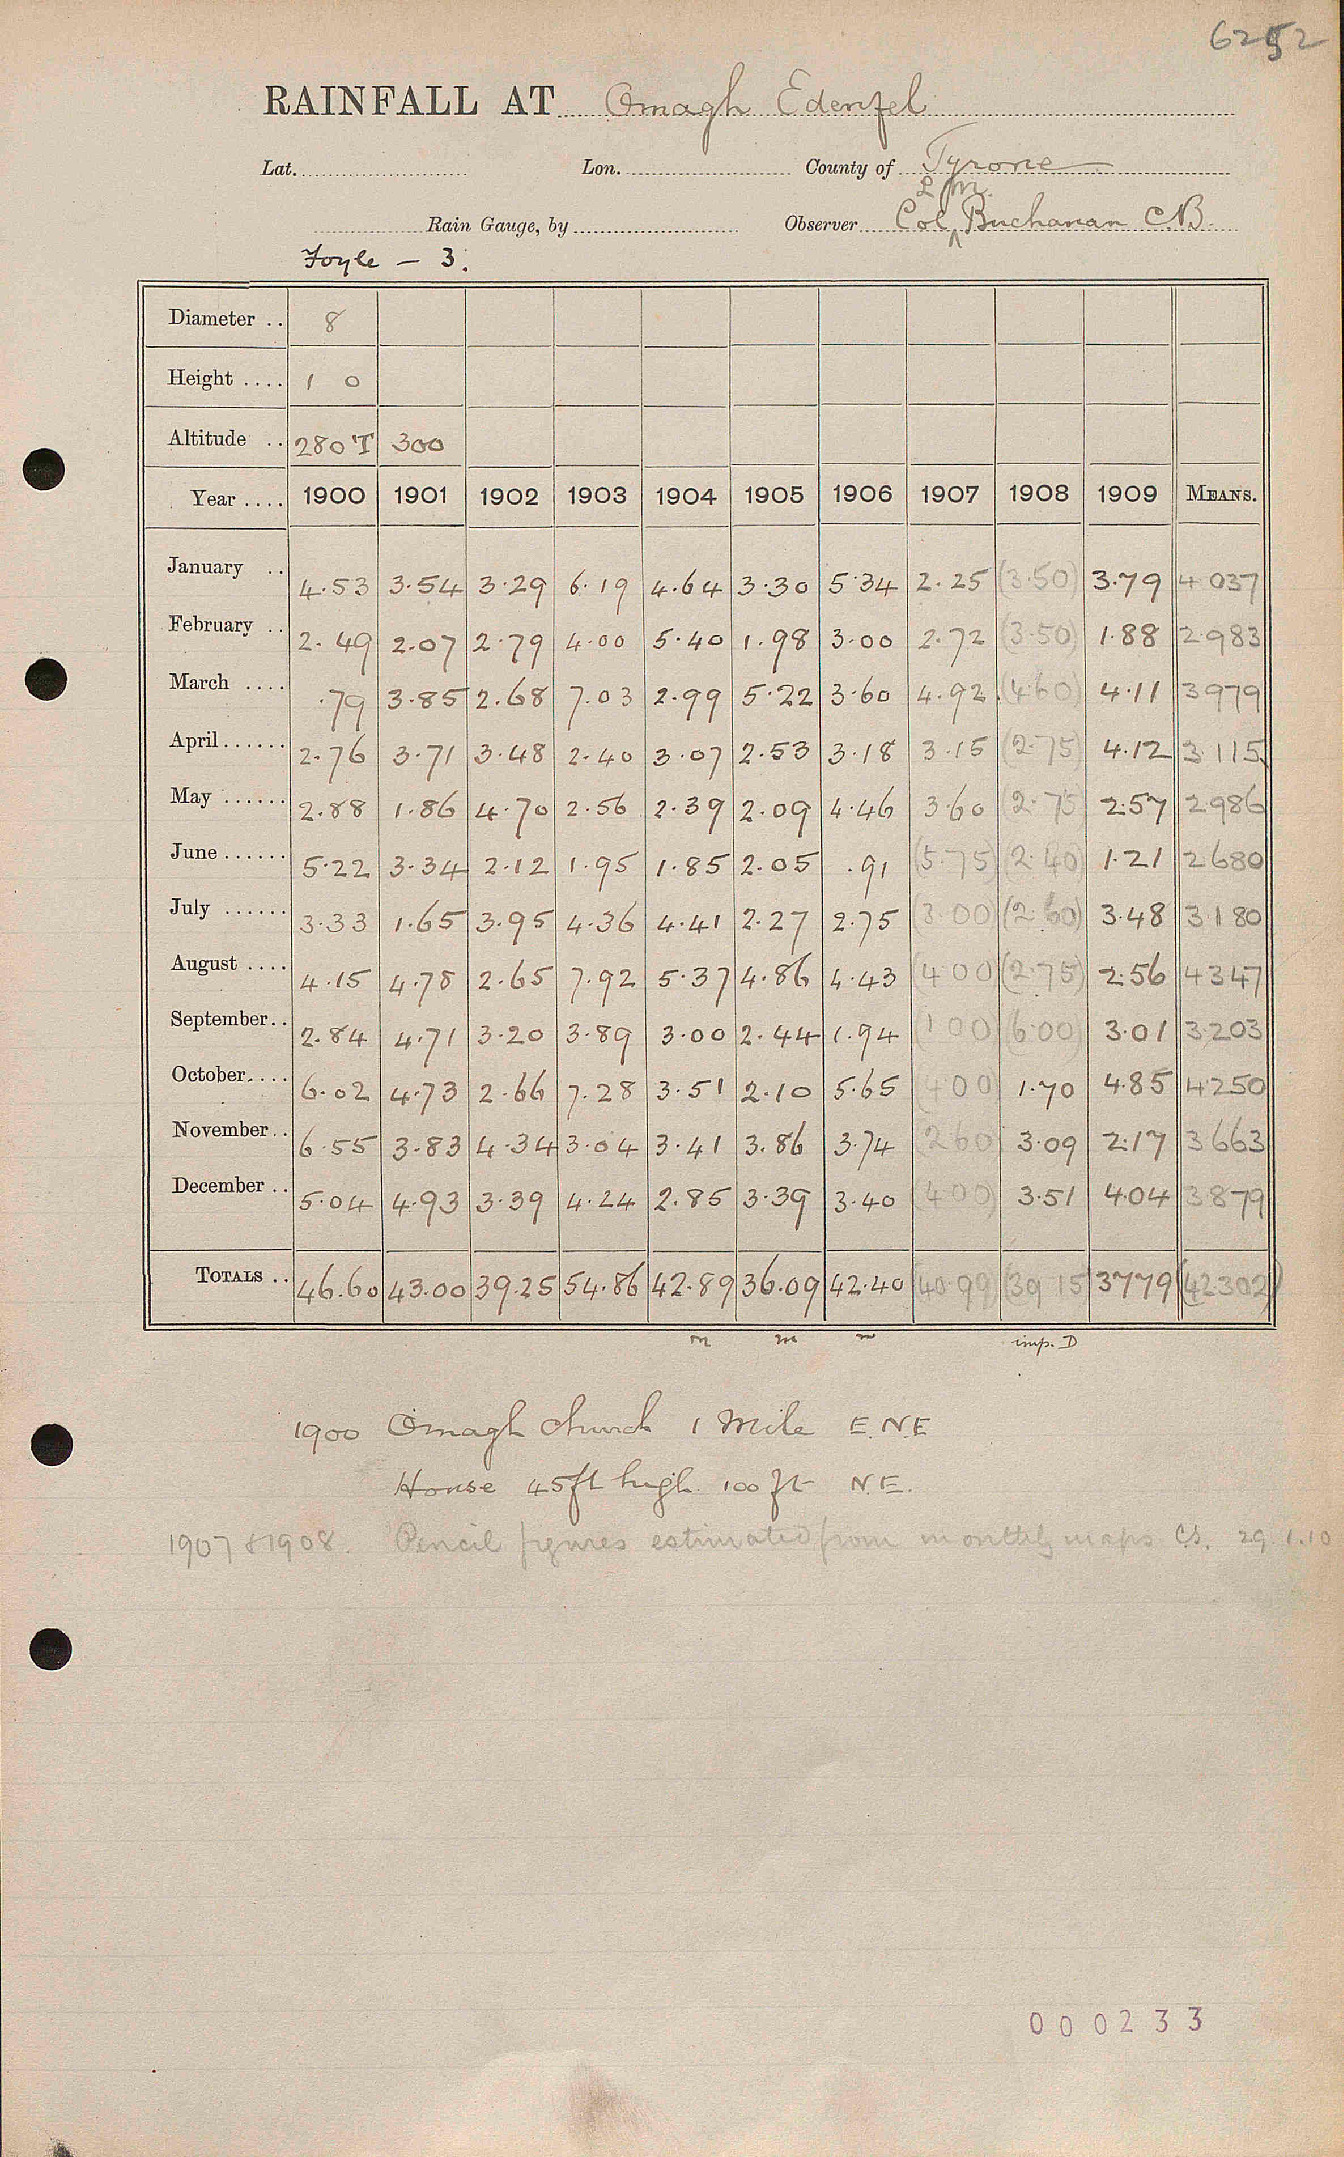 6252
RAINFALL AT Omagh Edenfel
Lat. Lon. County of Tyrone
L M.
Rain Gauge, by Observer Col ^ Buchanan C.B.
Foyle - 3.
Diameter .. 8
Height .... 1 0
Altitude .. 280 T 300
Year .... 1900 1901 1902 1903 1904 1905 1906 1907 1908 1909 MEANS.
January .. 4.53 3.54 3.29 6.19 4.64 3.30 5.34 2.25 (3.50) 3.79 4 037
February .. 2.49 2.07 2.79 4.00 5.40 1.98 3.00 2.72 (3.50) 1.88 2 983
March .... .79 3.85 2.68 7.03 2.99 5.22 3.60 4.92 (4.60) 4.11 3 979
April...... 2.76 3.71 3.48 2.40 3.07 2.53 3.18 3.15 (2.75) 4.12 3 115
May ...... 2.88 1.86 4.70 2.56 2.39 2.09 4.46 3.60 (2.75) 2.57 2 986
June...... 5.22 3.34 2.12 1.95 1.85 2.05 .91 (5.75) (2.40) 1.21 2 680
July ...... 3.33 1.65 3.95 4.36 4.41 2.27 2.75 (3.00) (2.60) 3.48 3 180
August .... 4.15 4.78 2.65 7.92 5.37 4.86 4.43 (4 00) (2.75) 2.56 4 347
September.. 2.84 4.71 3.20 3.89 3.00 2.44 1.94 (1 00) (6.00) 3.01 3 203
October.... 6.02 4.73 2.66 7.28 3.51 2.10 5.65 (4 00) 1.70 4.85 4 250
November.. 6.55 3.83 4.34 3.04 3.41 3.86 3.74 (2 60) 3.09 2.17 3 663
December .. 5.04 4.93 3.39 4.24 2.85 3.39 3.40 (4 00) 3.51 4 04 3 879
TOTALS .. 46.60 43.00 39.25 54.86 42.89 36.09 42.40 (40.99) (39 15) 37 79 (42 302)
m m m imp. D
1900 Omagh Church 1 Mile E.N.E
House 45ft high 100 ft N.E.
1907 & 1908. Pencil figures estimated from monthly maps C.S. 29.1.10
000233